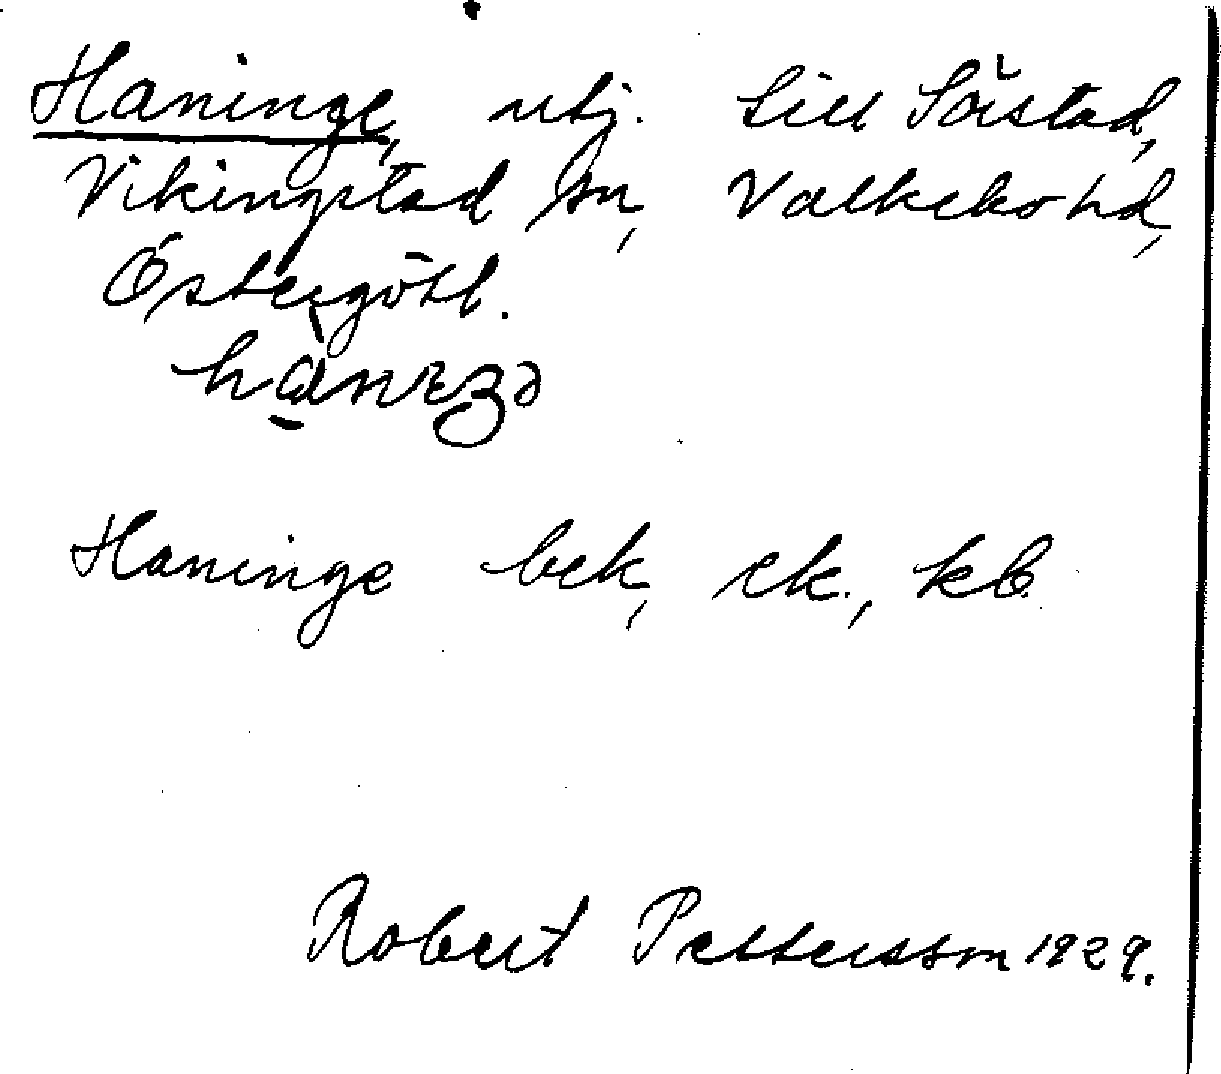 Haninge, utj. till Såstad,
Vikingstad sn, Valkebo hd,
Östergötl.
Haninge bek, ek., kb.
Robert Pettersson 1929.